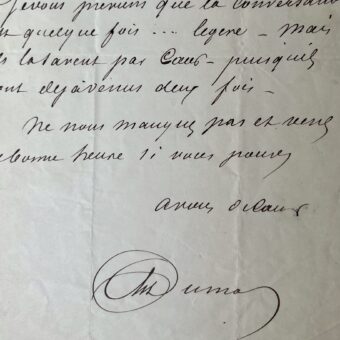 Je vous préviens que la conversa
t quelque fois ... légère - mais
s la savent par Caur - puisqu'ils
ont déjà venus deux fois -
Ne nous manquez pas et venez
bonne heure si vous pouvez
à vous
Dumas